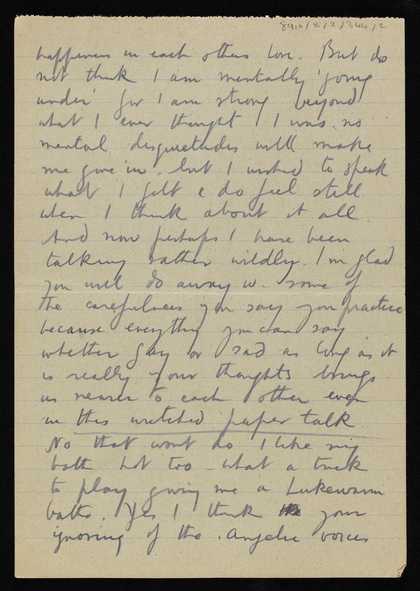 happiness in each others love. But do
not think I am mentally 'going
under' for I am strong beyond
what I ever thought I was. no
mental disquietudes will make
me give in. but I wished to speak
what I felt & do feel still
when I think about it all.
And now perhaps I have been
talking rather wildly. I'm glad
you will do away w. some of
the carefulness you say you practice
because everything you can say
whether gay or sad as long as it
is really your thoughts brings
us nearer to each other even
in this wretched paper talk
No that wont do I like my
bath hot too - what a trick
to play giving me a Lukewarm
bath. Yes I think your
ignoring of the Angelic voices